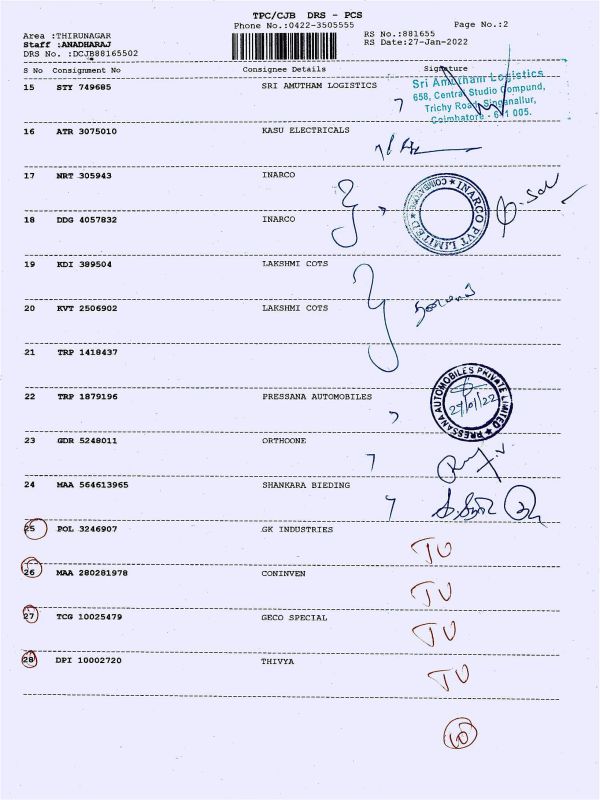 TPC/CJB DRS - PCS
Phone No.:0422-3505555
Page No.:2
Area :THIRUNAGAR
Staff :ANADHARAJ
DRS No. :DCJB88165502
RS No.:881655
RS Date:27-Jan-2022
S No Consignment No Consignee Details Signature
15 STY 749685 SRI AMUTHAM LOGISTICS
Sri Amutham Logistics
658, Central Studio Compund,
Trichy Road, Singanallur,
Coimbatore - 641 005.
16 ATR 3075010 KASU ELECTRICALS
17 NRT 305943 INARCO
INARCO PVT LIMITED
18 DDG 4057832 INARCO
19 KDI 389504 LAKSHMI COTS
20 KVT 2506902 LAKSHMI COTS
21 TRP 1418437
22 TRP 1879196 PRESSANA AUTOMOBILES
PRESSANA AUTOMOBILES PRIVATE LIMITED
27/01/22
23 GDR 5248011 ORTHOONE
24 MAA 564613965 SHANKARA BIEDING
25 POL 3246907 GK INDUSTRIES
TU
26 MAA 280281978 CONINVEN
TU
27 TCG 10025479 GECO SPECIAL
TU
28 DPI 10002720 THIVYA
TU